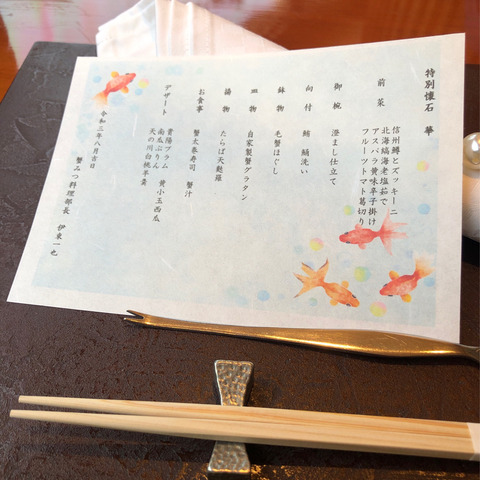 特別懐石 華
前菜 信州鱒とズッキーニ
北海縞海老塩茹で
アスパラ黄味辛子掛け
フルーツトマト葛切り
御椀 澄まし仕立て
向付 鮪 鱸洗い
鉢物 毛蟹ほぐし
皿物 自家製蟹グラタン
揚物 たらば天麩羅
お食事 蟹太巻寿司 蟹汁
デザート 貴陽プラム 黄小玉西瓜
南瓜ぷりん
天の川白桃羊羹
令和三年八月吉日
蟹みつ料理部長 伊東一也